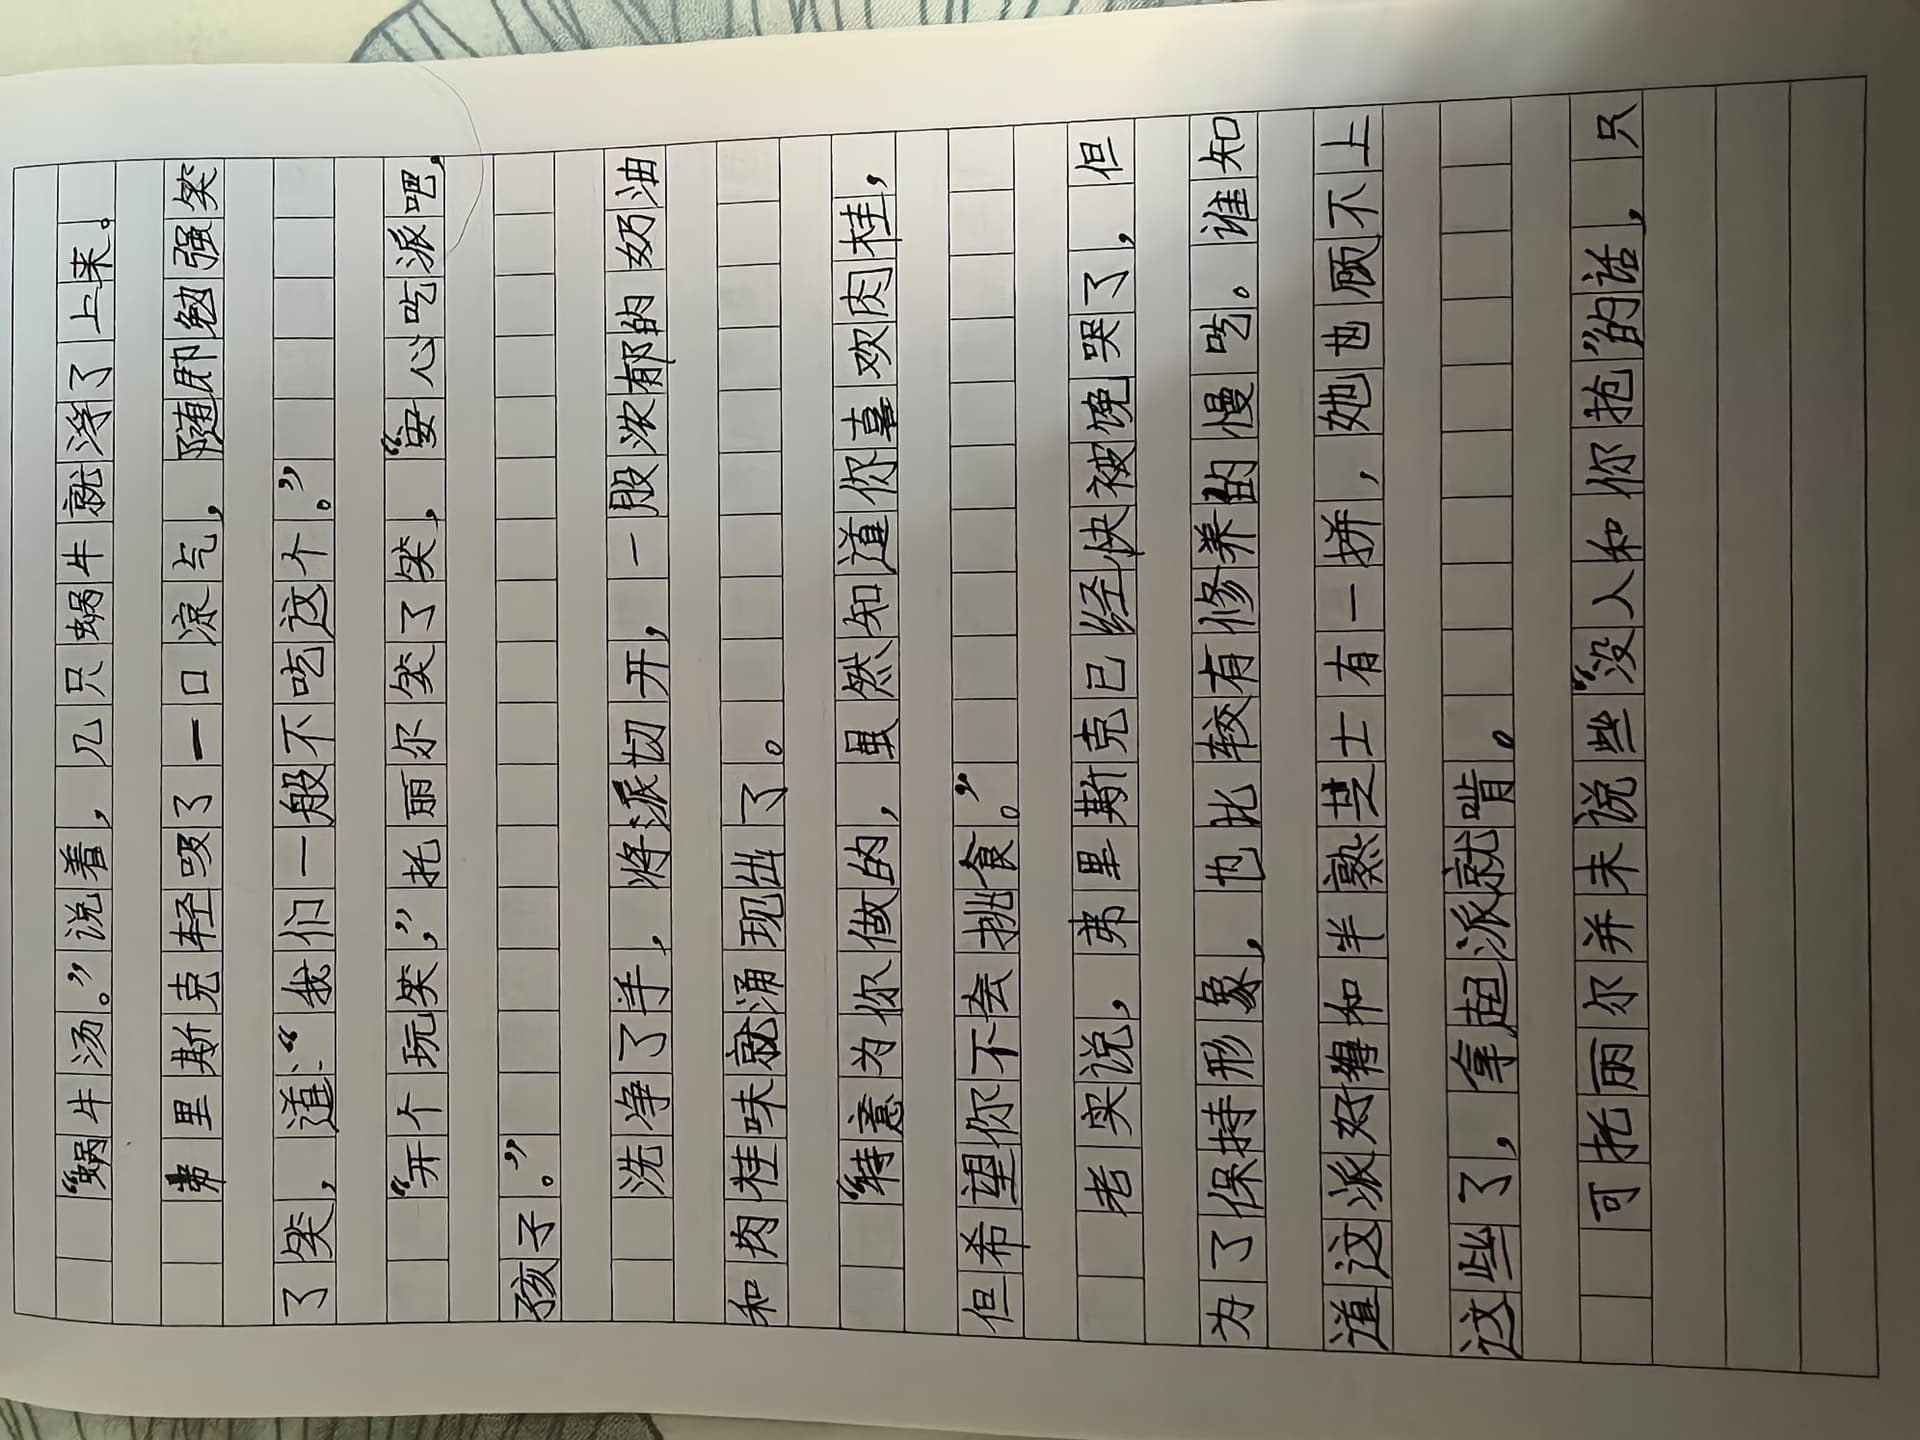 “蜗牛汤。”说着，几只蜗牛就浮了上来。
弗里斯克轻吸了一口凉气，随即勉强笑
了笑，道：“我们一般不吃这个。”
“开个玩笑，”托丽尔笑了笑，“安心吃派吧，
孩子。”
洗净了手，将派切开，一股浓郁的奶油
和肉桂味就涌现出了。
“特意为你做的，虽然知道你喜欢肉桂，
但希望你不会挑食。”
老实说，弗里斯克已经快被馋哭了，但
为了保持形象，也比较有修养的慢吃。谁知
道这派好得和半熟芝士有一拼，她也顾不上
这些了，拿起派就啃。
可托丽尔并未说些“没人和你抢”的话，只